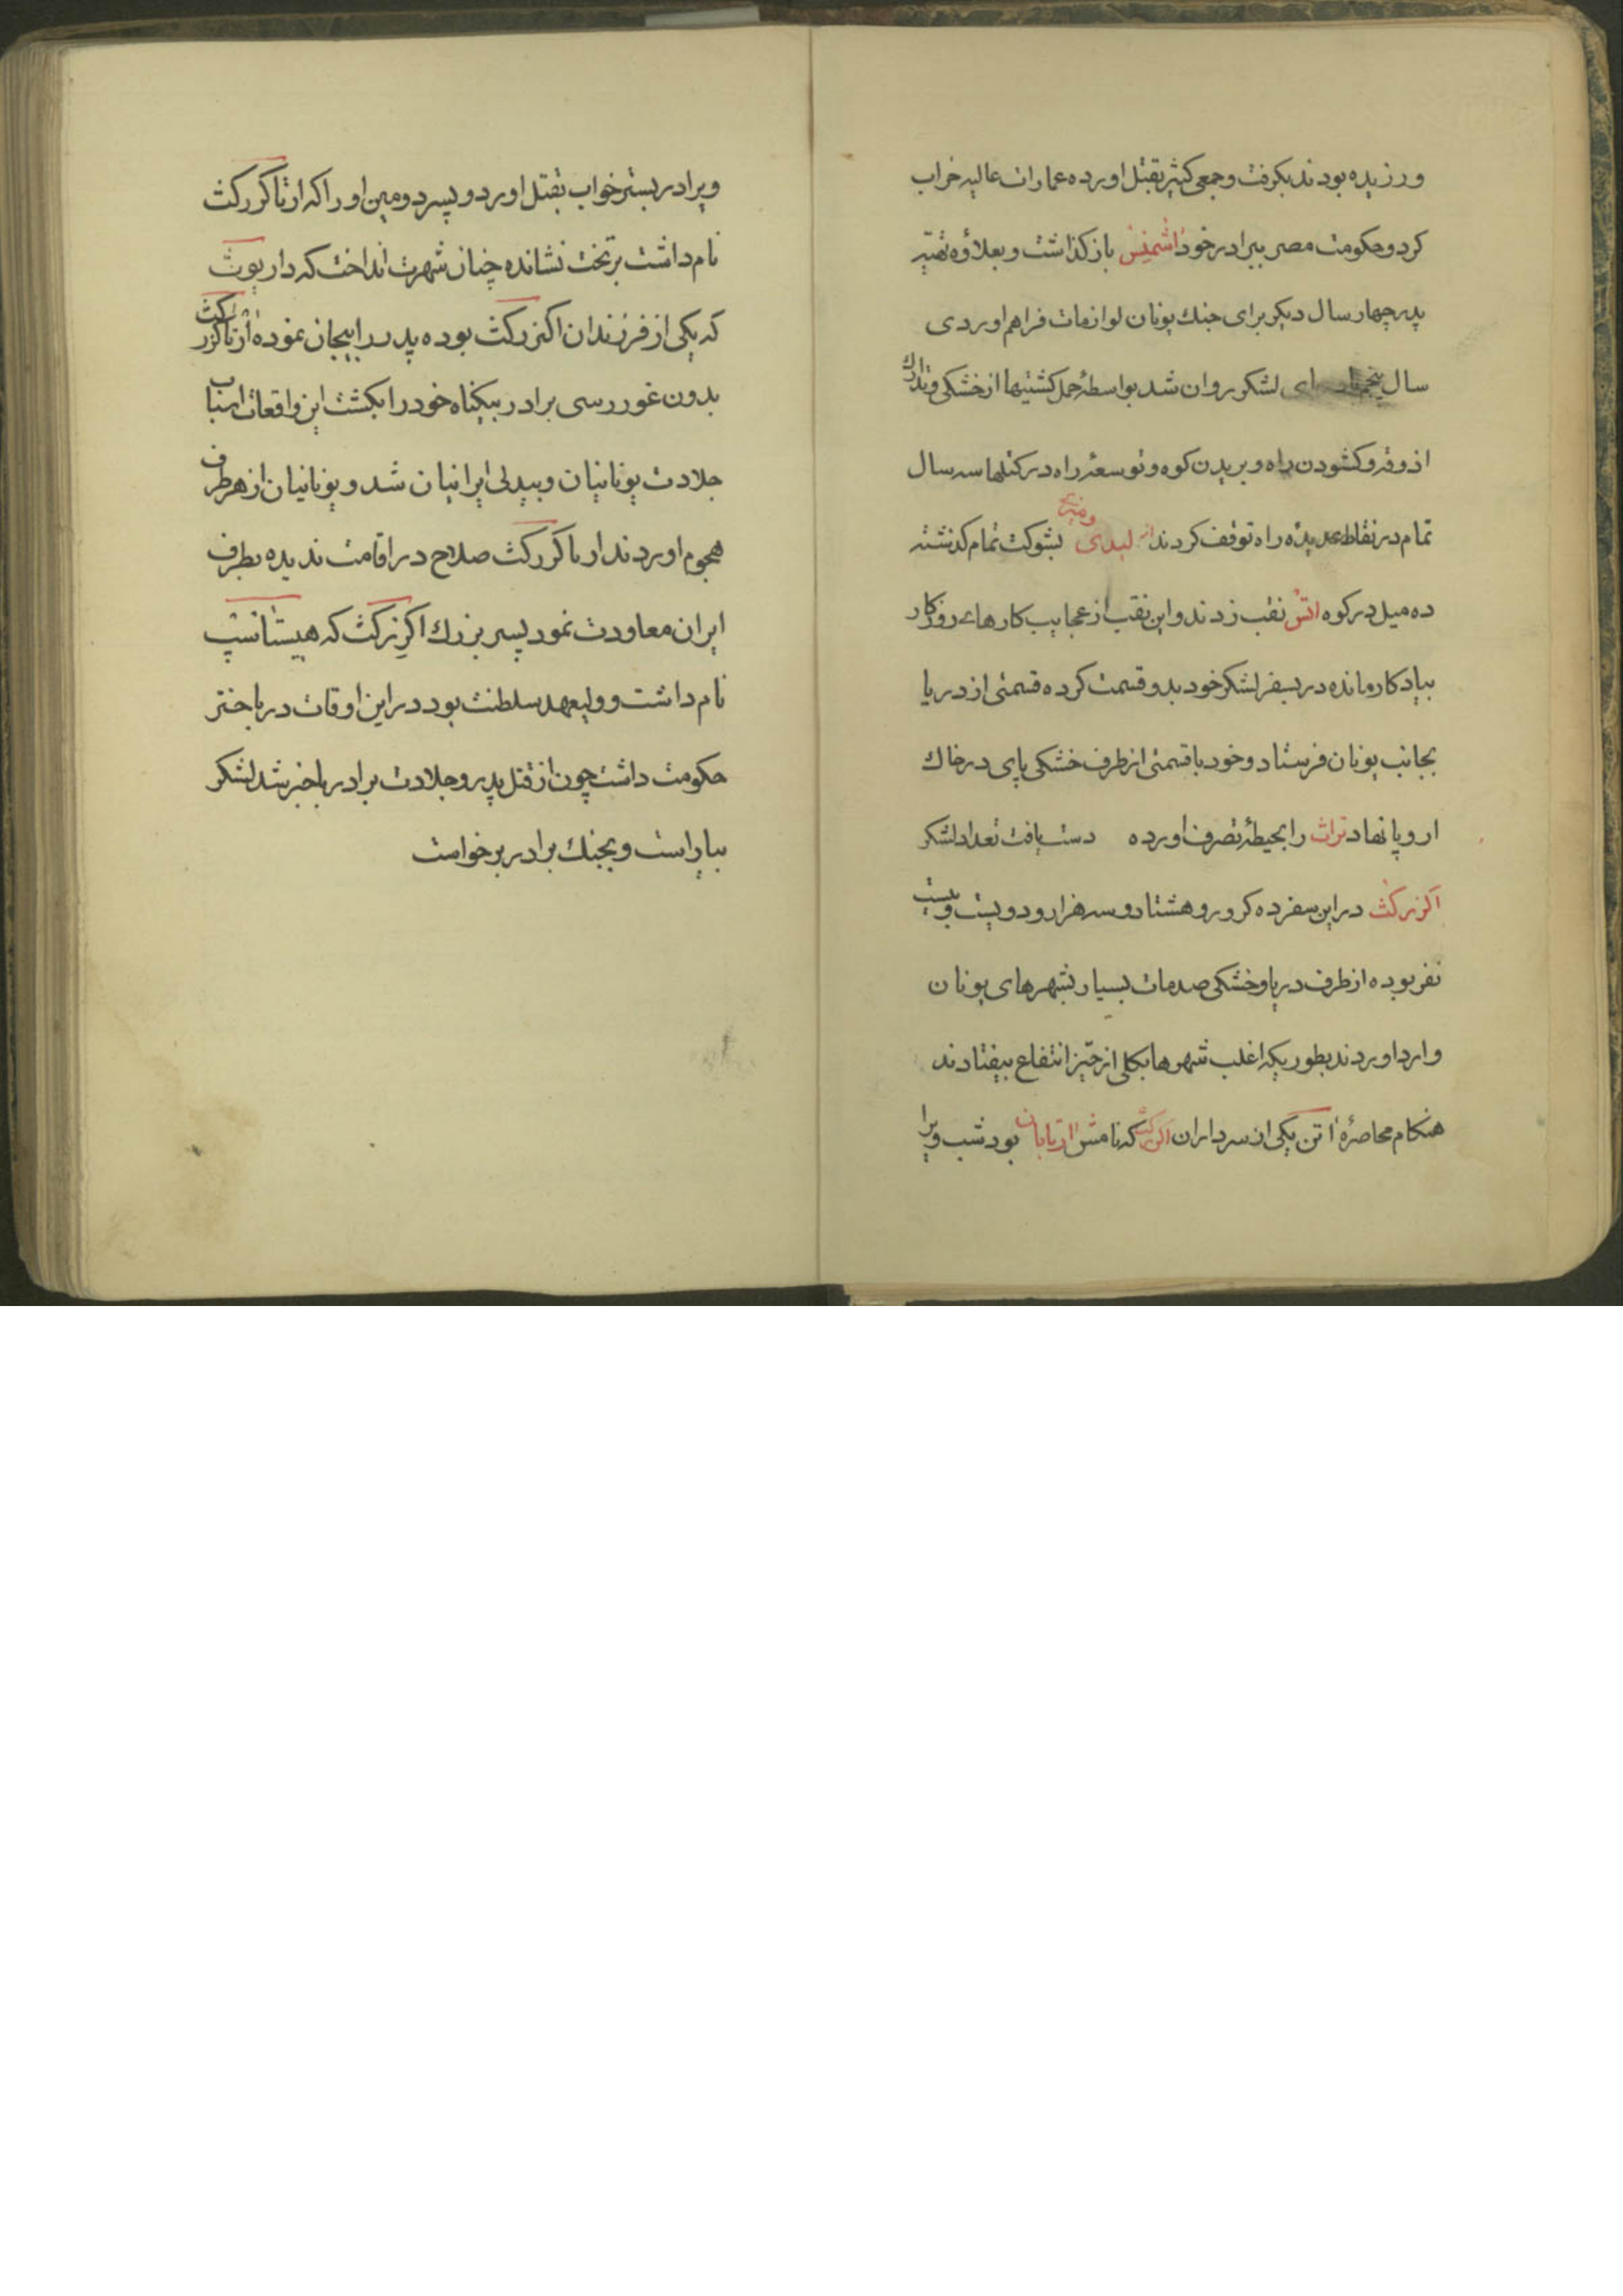 ورزیده بودند بکرفت و جمعی کثیر بقتل اورده عمارات عالیه خراب
کرد و حکومت مصر ببرادر خود اشمنیس بازکذاشت و بعلاوهٔ تهیّهٔ
پدر چهار سال دیکر برای جنك یونان لوازمات فراهم اوردی
سال پنجم ای لشکر روان شد بواسطهٔ حمل کشتیها از خشکی و تدارك
اذوقه و کشودن راه و بریدن کوه و توسعهٔ راه در کتلها سه سال
تمام در نقاط عدیدهٔ راه توقف کردند از لیدی و بشوکت تمام کذشته
ده میل در کوه اتس نقب زدند و این نقب از عجایب کارهای روزکار
بیادکار مانده در سفر لشکر خود بدو قسمت کرده قسمتی از دریا
بجانب یونان فرستاد و خود با قسمتی از طرف خشکی پای در خاك
اروپا نهاد تراث را بحیطهٔ تصرف اورده دست یافت تعداد لشکر
اکزرکث در این سفر ده کرور و هشتاد و سه هزار و دویست و بیست
نفر بوده از طرف دریا و خشکی صدمات بسیار بشهرهای یونان
وارد اوردند بطوریکه اغلب شهرها بکلی از حیّز انتفاع بیفتادند
هنکام محاصرهٔ اتن یکی از سرداران اکزرکث که نامش ارتابان بود شب ویرا
ویرا در بستر خواب بقتل اورد و پسر دومین او را که ارتاکزرکث
نام داشت بر تخت نشانده چنان شهرت انداخت که داریوث
که یکی از فرزندان اکزرکث بوده پدر را بیجان نموده ارتاکزرکث
بدون غور رسی برادر بیکناه خود را بکشت این واقعات اسباب
جلادت یونانیان و بیدلی ایرانیان شد و یونانیان از هر طرف
هجوم اوردند ارتاکزرکث صلاح در اقامت ندیده بطرف
ایران معاودت نمود پسر بزرك اکزرکث که هیستانسپ
نام داشت و ولیعهد سلطنت بود در این اوقات در باختر
حکومت داشت چون از قتل پدر و جلادت برادر باخبر شد لشکر
بیاراست و بجنك برادر برخواست